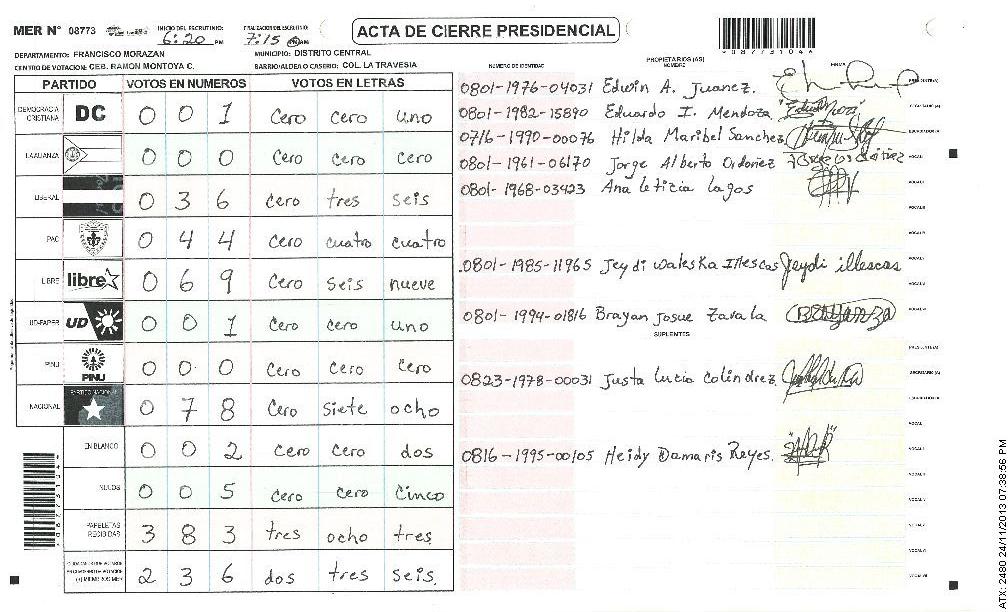 MER N° 08773 INICIO DEL ESCRUTINIO: 6:20 PM FINALIZACION DEL ESCRUTINIO: 7:15 ACTA DE CIERRE PRESIDENCIAL
DEPARTAMENTO: FRANCISCO MORAZAN MUNICIPIO: DISTRITO CENTRAL
CENTRO DE VOTACION: CEB. RAMON MONTOYA C. BARRIO/ALDEA O CASERIO: COL. LA TRAVESIA
PARTIDO VOTOS EN NUMEROS VOTOS EN LETRAS
DEMOCRACIA CRISTIANA DC 0 0 1 Cero Cero uno
LA ALIANZA 0 0 0 Cero Cero Cero
LIBERAL 0 3 6 Cero tres seis
PAC 0 4 4 Cero cuatro cuatro
LIBRE libre 0 6 9 Cero seis nueve
UD-FAPER UD 0 0 1 Cero Cero uno
PINU PINU 0 0 0 Cero Cero Cero
NACIONAL PARTIDO NACIONAL 0 7 8 Cero siete ocho
EN BLANCO 0 0 2 Cero Cero dos
NULOS 0 0 5 Cero Cero Cinco
PAPELETAS RECIBIDAS 3 8 3 tres ocho tres
2 3 6 dos tres seis
NUMERO DE IDENTIDAD PROPIETARIOS (AS) NOMBRE FIRMA
0801-1976-04031 Edwin A. Juanez.
0801-1982-15890 Eduardo I. Mendoza
0716-1990-00076 Hilda Maribel Sanchez
0801-1961-06170 Jorge Alberto Ordoñez
0801-1968-03423 Ana leticia lagos
0801-1985-11965 Jeydi Waleska Illescas Jeydi illescas
0801-1994-01816 Brayan Josue Zavala
SUPLENTES
0823-1978-00031 Justa Lucia Colindrez
0816-1995-00105 Heidy Damaris Reyes.
ATX: 2480 24/11/2013 07:38:56 PM